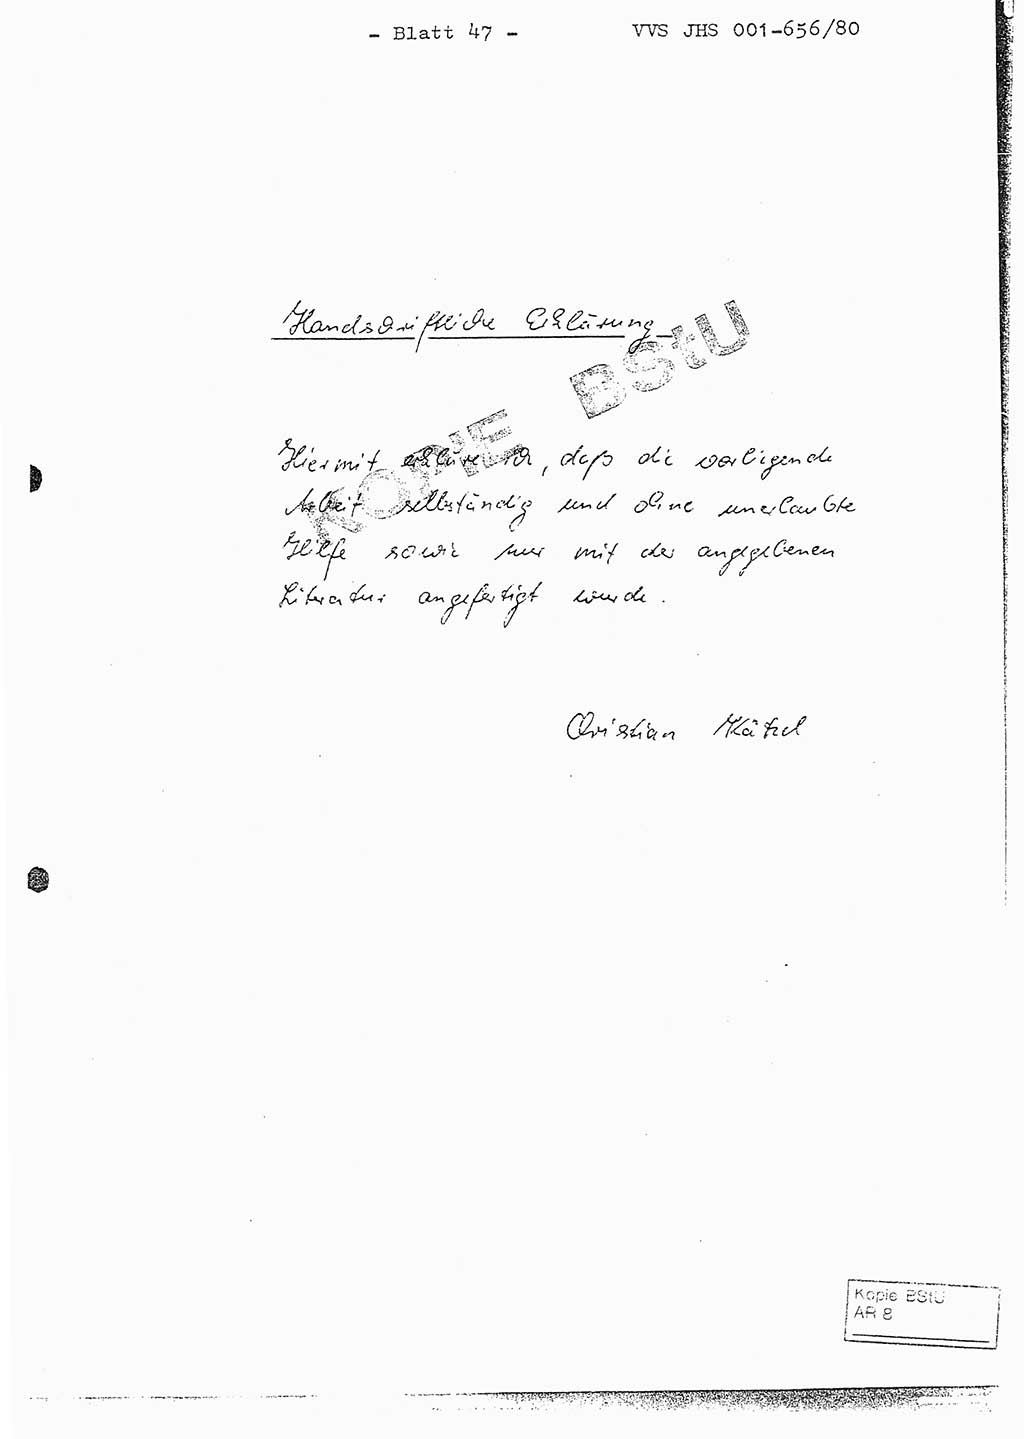 - Blatt 47 - VVS JHS 001-656/80
Handschriftliche Erklärung
KOPIE BStU
Hiermit erkläre ich, daß die vorliegende
Arbeit selbständig und ohne unerlaubte
Hilfe sowie nur mit der angegebenen
Literatur angefertigt wurde.
Christian Kätzel
Kopie BStU
AR 8